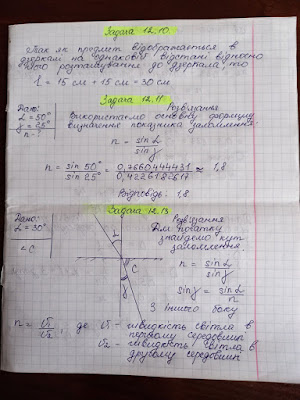 Задача 12.10.
Так як предмет відображається в
дзеркалі на однаковій відстані відносно
розташування до дзеркала, то
l = 15 см + 15 см = 30 см
Задача 12.11.
Дано:
Розв'язання
α = 50°
γ = 25°
n - ?
Використаємо основну формулу
визначення показника заломлення:
n = sinα / sinγ
n = sin 50° / sin 25° = 0,7660444431 / 0,4226182617 ≈ 1,8
Відповідь: 1,8
Задача 12.13
Дано:
Розв'язання
α = 30°
∠C
α
C
γ
Для початку
знайдемо кут
заломлення.
n = sinα / sinγ
sinγ = sinα / n
З іншого боку
n = v1 / v2, де v1 - швидкість світла в
першому середовищі
v2 - швидкість світла в
другому середовищі